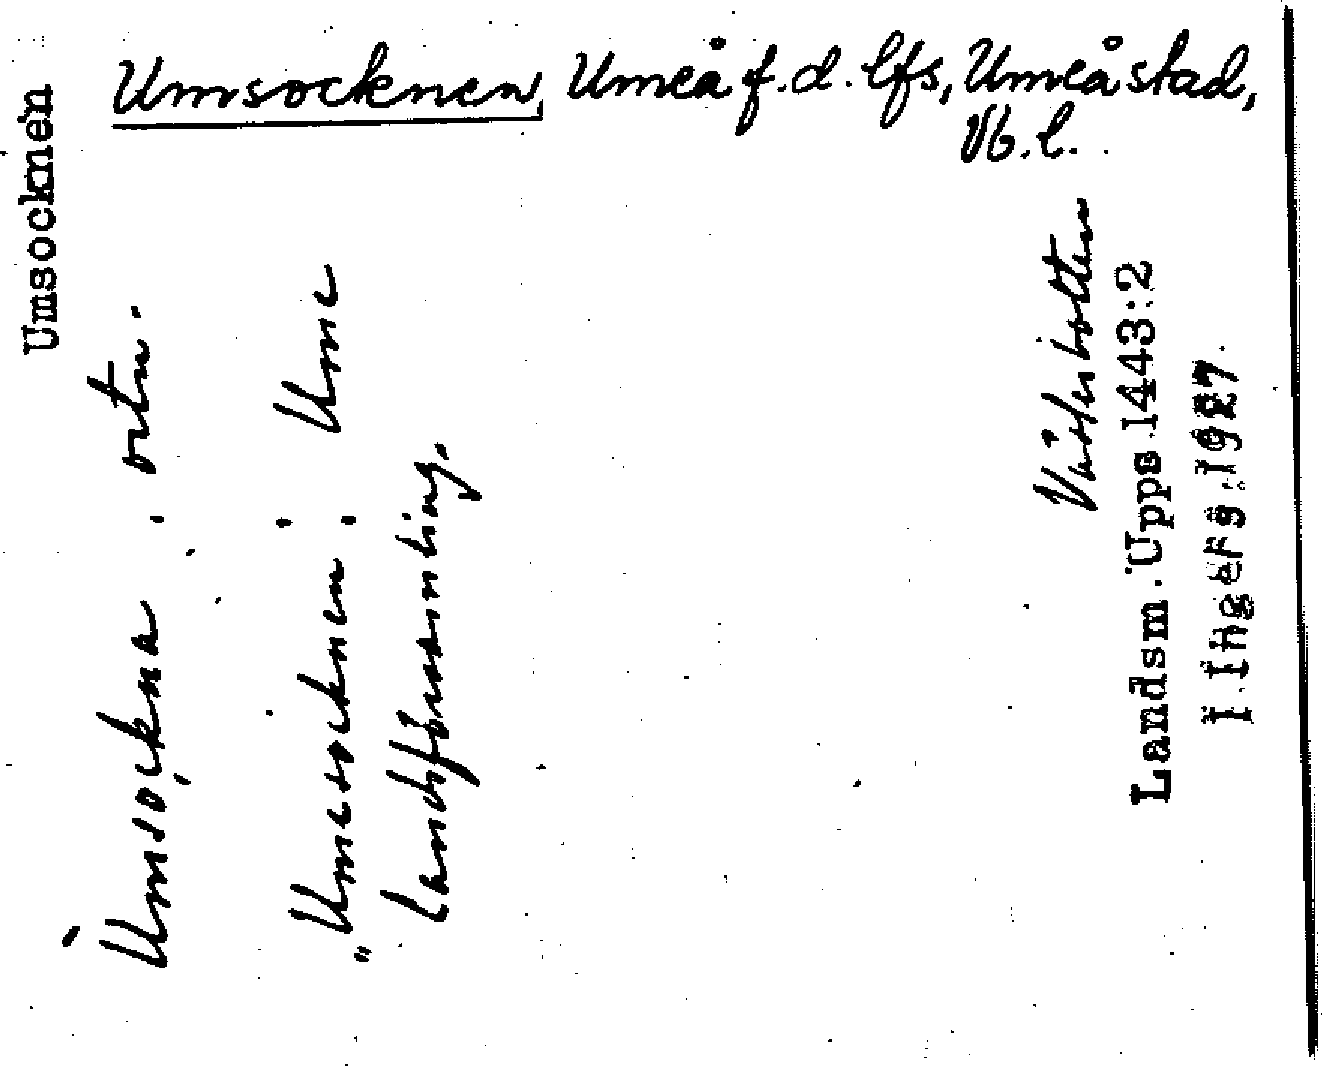 Umsocknen, Umeå f.d. lfs, Umeå stad,
Vb.l.
Umsocknen
Umsockna, ortn.
"Umesocknen": Ume
landsförsamling.
Västerbotten
Landsm. Upps. 1443:2
I. Ingers. 1927.